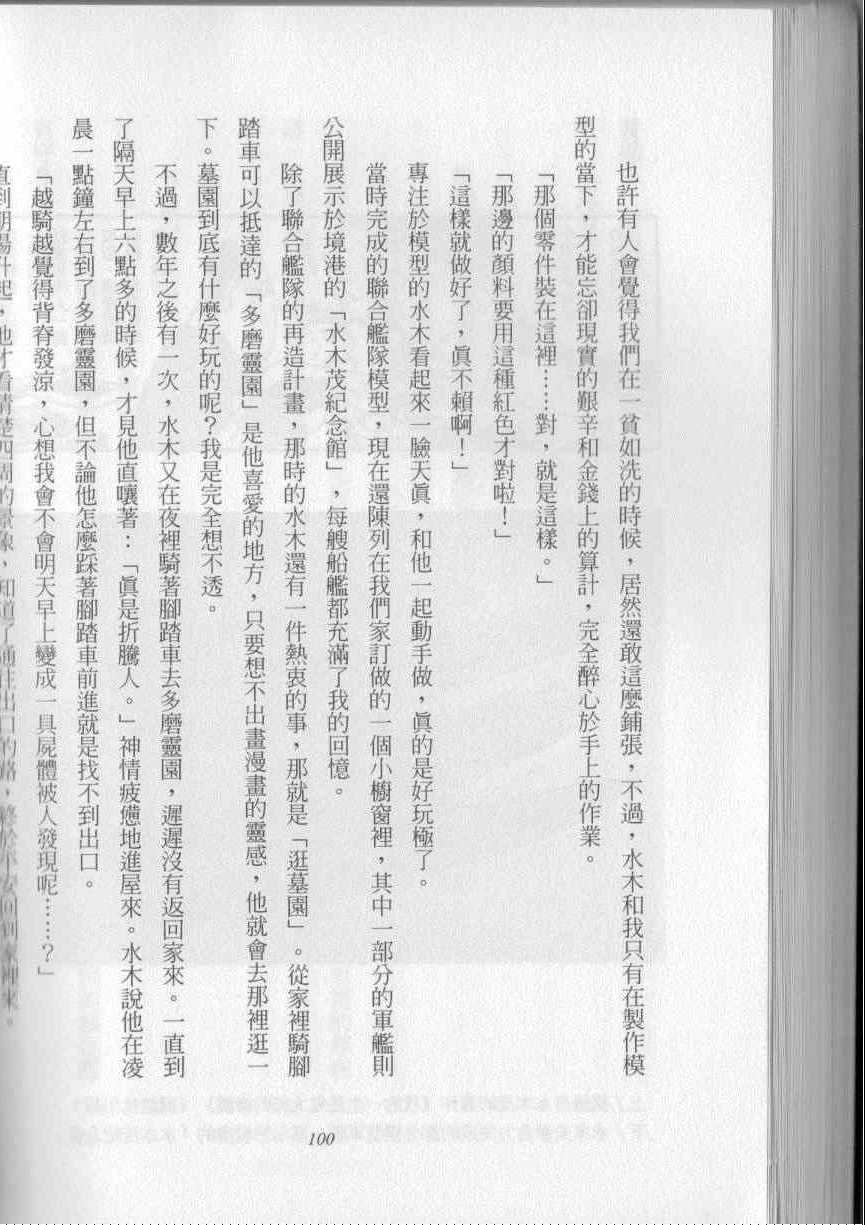 也許有人會覺得我們在一貧如洗的時候，居然還敢這麼鋪張，不過，水木和我只有在製作模
型的當下，才能忘卻現實的艱辛和金錢上的算計，完全醉心於手上的作業。
「那個零件裝在這裡……對，就是這樣。」
「那邊的顏料要用這種紅色才對啦！」
「這樣就做好了，眞不賴啊！」
專注於模型的水木看起來一臉天眞，和他一起動手做，眞的是好玩極了。
當時完成的聯合艦隊模型，現在還陳列在我們家訂做的一個小櫥窗裡，其中一部分的軍艦則
公開展示於境港的「水木茂紀念館」，每艘船艦都充滿了我的回憶。
除了聯合艦隊的再造計畫，那時的水木還有一件熱衷的事，那就是「逛墓園」。從家裡騎腳
踏車可以抵達的「多磨靈園」是他喜愛的地方，只要想不出畫漫畫的靈感，他就會去那裡逛一
下。墓園到底有什麼好玩的呢？我是完全想不透。
不過，數年之後有一次，水木又在夜裡騎著腳踏車去多磨靈園，遲遲沒有返回家來。一直到
了隔天早上六點多的時候，才見他直嚷著：「眞是折騰人。」神情疲憊地進屋來。水木說他在凌
晨一點鐘左右到了多磨靈園，但不論他怎麼踩著腳踏車前進就是找不到出口。
「越騎越覺得背脊發涼，心想我會不會明天早上變成一具屍體被人發現呢……？」
直到朝陽升起，他才看清楚四周的景象，知道了通往出口的路，終於平安回到家裡來。
100